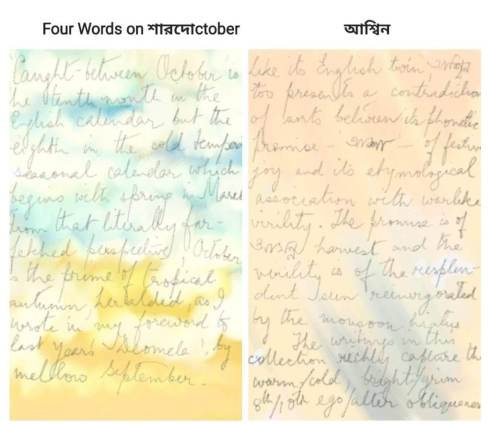 Four Words on শারদোctober
Caught between October is
he tenth month in the
English calendar but the
eighth in the cold temper
seasonal calendar which
begins with spring in March
From that literally far-
fetched perspective, October
is the prime of tropical
autumn, heralded, as I
wrote in my foreword to
last year's by
mellow September.
আশ্বিন
Like its English twin,
too presents a contradiction
of sorts between its phonetic
promise - of festive
joy and its etymological
association with warlike
virility. The promise is of
harvest and the
virility is of the resplen-
dent sun reinvigorated
by the monsoon hiatus
The writings in this
collection richly capture th
warm/cold bright/grim
8th/10th ego/alter obliqueness